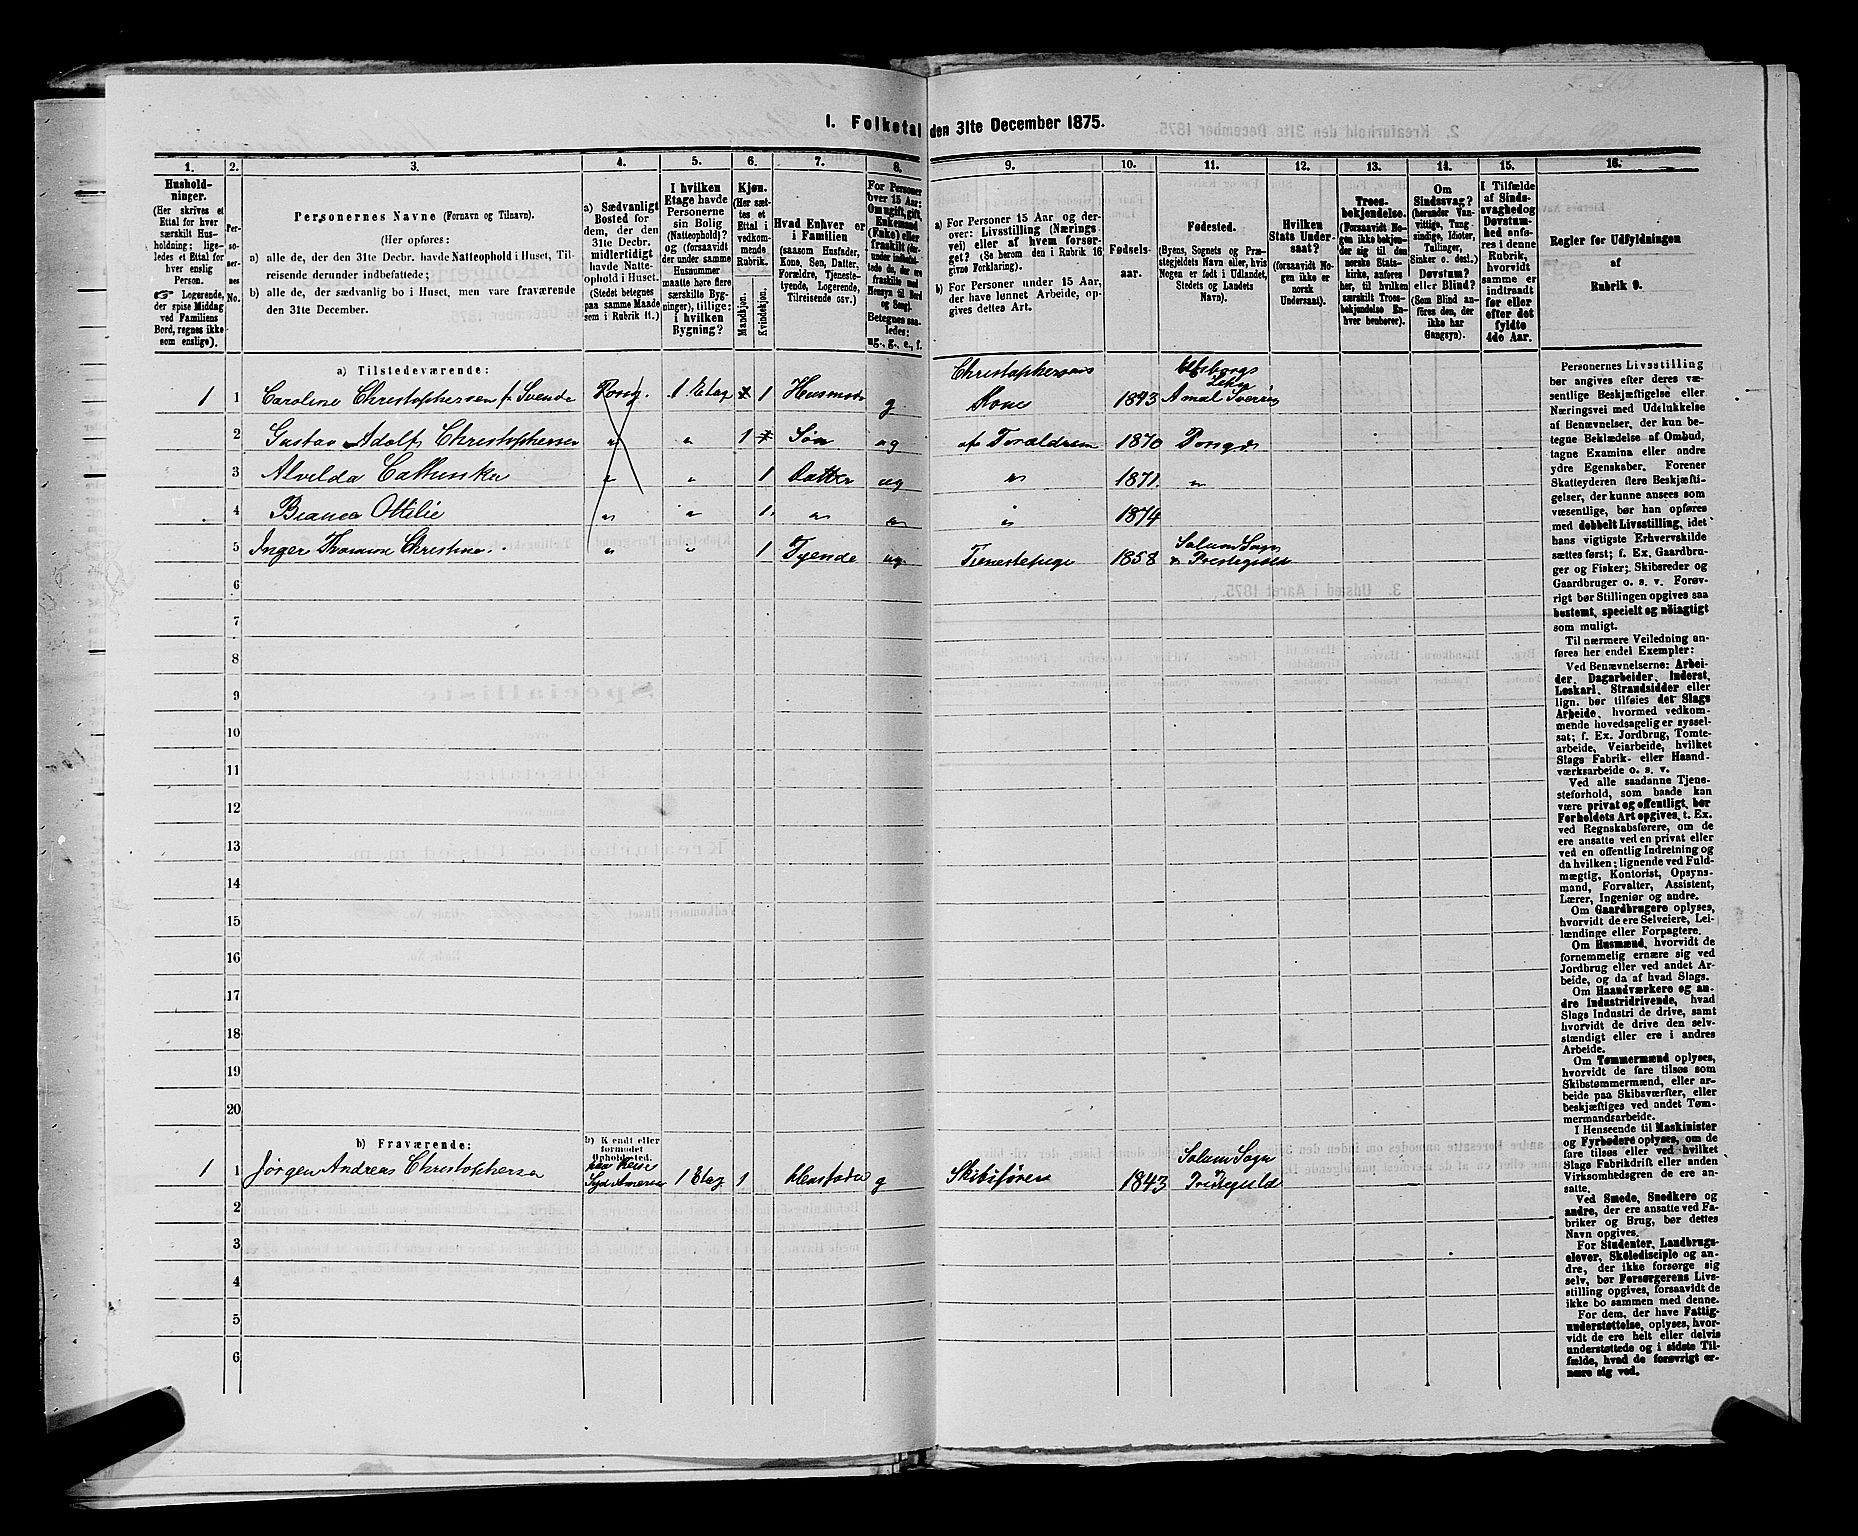 I. Folketal den 31te December 1875.
1. 2. 3. 4. 5. 6. 7. 8. 9. 10. 11. 12. 13. 14. 15. 16.
Husholdninger.
(Her skrives et
Ettal for hver
særskilt Husholdning;
ligeledes et Ettal for
hver enslig
Person.
Logerende,
der spise Middag
ved Familiens
Bord, regnes ikke
som enslige).
Personernes No.
Personernes Navne (Fornavn og Tilnavn).
(Her opføres:
a) alle de, der den 31te Decbr. havde Natteophold i Huset, Tilreisende
derunder indbefattede;
b) alle de, der sædvanlig bo i Huset, men vare fraværende
den 31te December.
a) Sædvanligt
Bosted for
dem, der den
31te Decbr.
midlertidigt
havde Natteophold
i Huset.
(Stedet betegnes
paa samme Maade
som i Rubrik 11.)
I hvilken
Etage havde
Personerne
sin Bolig
(Natteophold)?
og (forsaavidt
der under samme
Husnummer
maatte høre flere
særskilte Bygninger),
tillige:
i hvilken
Bygning?
Kjøn.
(Her sættes
et
Ettal i
vedkommende
Rubrik.
Mandkjøn.
Kvindekjøn.
Hvad Enhver er
i Familien
(saasom Husfader,
Kone, Søn, Datter,
Forældre, Tjenestetyende,
Logerende,
Tilreisende osv.)
For Personer
over 15 Aar:
Om ugift, gift,
Enkemand
(Enke) eller
fraskilt
Betegnes saaledes:
ug., g., e., f.
a) For Personer 15 Aar og derover:
Livsstilling (Næringsvei)
eller af hvem forsørget?
(Se herom den i Rubrik 16
givne Forklaring).
b) For Personer under 15 Aar,
der have lønnet Arbeide, opgives
dettes Art.
Fødselsaar.
Fødested.
(Byens, Sognets og Præstegjeldets
Navn eller, hvis
Nogen er født i Udlandet,
Stedets og Landets
Navn).
Hvilken
Stats Undersaat?
(forsaavidt Nogen
ikke er
norsk
Undersaat).
Troesbekjendelse.
(Forsaavidt Nogen
ikke bekjender
sig til den
norske Statskirke,
anføres
her, til hvilken
særskilt Troesbekjendelse
Enhver
henhører).
Om
Sindssvag?
(herunder Vanvittige,
Tungsindige,
Idioter,
Tullinger,
Sinker o. desl.)
Døvstum?
eller Blind?
(Som Blind anføres
den, der
ikke har
Gangsyn).
I Tilfælde
af Sindssvaghed
og
Døvstumhed
anføres
i denne
Rubrik,
hvorvidt
samme er
indtraadt
før eller
efter det
fyldte
4de Aar.
Regler for Udfyldningen
af
Rubrik 9.
a) Tilstedeværende:
1 1 Caroline Christophersen f. Svends 1 Etag 1 Husmod g Christophersens Kone 1843 Amal Sverrig
2 Gustav Adolf Christophersen " " 1 Søn ug af Foræeldrene 1870 Porsgr.
3 Alvilda Cathinka " " 1 Datter ug " 1871 "
4 Bianca Ottilie " " 1 " " " 1874
5 Inger Thomine Christine " " 1 Tyende ug. Tienestepige 1858 Solum Sogn
6
7
8
9
10
11
12
13
14
15
16
17
18
19
20
b) Fraværende:
b) Kendt eller
formodet
Opholdssted.
1 1 Jørgen Andreas Christophersen paa Reise Syd Amerika 1 Etag 1 Husfader g Skibsfører 1843 Solum Sogn
2
3
4
5
6
Personernes Livsstilling
bør angives efter deres væsentlige
Beskjæftigelse eller
Næringsvei med Udelukkelse
af Benævnelser, der kun betegne
Beklædelse af Ombud,
tagne Examina eller andre
ydre Egenskaber. Forener
Skatteyderen flere Beskjæftigelser,
der kunne ansees som
væsentlige, bør han opføres
med dobbelt Livsstilling, idet
hans vigtigste Erhvervskilde
sættes først; f. Ex. Gaardbruger
og Fisker; Skibsreder og
Gaardbruger o. s. v. Forøvrigt
bør Stillingen opgives saa
bestemt, specielt og nöiagtigt
som muligt.
Til nærmere Veiledning anføres
her endel Exempler:
Ved Benævnelserne: Arbeider,
Dagarbeider, Inderst,
Løskarl, Strandsidder eller
lign. bør tilføies det Slags
Arbeide, hvormed vedkommende
hovedsagelig er sysselsat;
f. Ex. Jordbrug, Tomtearbeide,
Veiarbeide, hvilket
Slags Fabrik- eller Haandværksarbeide
o. s. v.
Ved alle saadanne Tjenesteforhold,
som baade kan
være privat og offentligt, bør
Forholdets Art opgives, t. Ex.
ved Regnskabsførere, om de
ere ansatte ved en privat eller
ved en offentlig Indretning og
da hvilken; lignende ved Fuldmægtig,
Kontorist, Opsynsmand,
Forvalter, Assistent,
Lærer, Ingeniør og andre.
Om Gaardbrugere oplyses,
hvorvidt de ere Selveiere, Leilændinge
eller Forpagtere.
Om Husmænd, hvorvidt de
fornemmelig ernære sig ved
Jordbrug eller ved andet Arbeide,
og da af hvad Slags.
Om Haandværkere og andre
Industridrivende, hvad
Slags Industri de drive, samt
hvorvidt de drive den selvstændigt
eller ere i andres
Arbeide.
Om Tømmermænd oplyses,
hvorvidt de fare tilsøs som
Skibstømmermænd, eller arbeide
paa Skibsværfter, eller
beskjæftiges ved andet Tømmermandsarbeide.
I Henseende til Maskinister
og Fyrbødere oplyses, om de
fare tilsøs eller ved hvilket
Slags Fabrikdrift eller anden
Virksomhedsgren de ere ansatte.
Ved Smede, Snedkere og
andre, der ere ansatte ved Fabriker
og Brug, bør dettes
Navn opgives.
For Studenter, Landbrugselever,
Skoledisciple og andre,
der ikke forsørge sig
selv, bør Forsørgerens Livsstilling
opgives, forsaavidt de
ikke bo sammen med denne.
For dem, der have Fattigunderstøttelse,
oplyses, hvorvidt
de ere helt eller delvis
understøttede og i sidste Tilfælde,
hvad de forøvrigt ernære
sig ved.